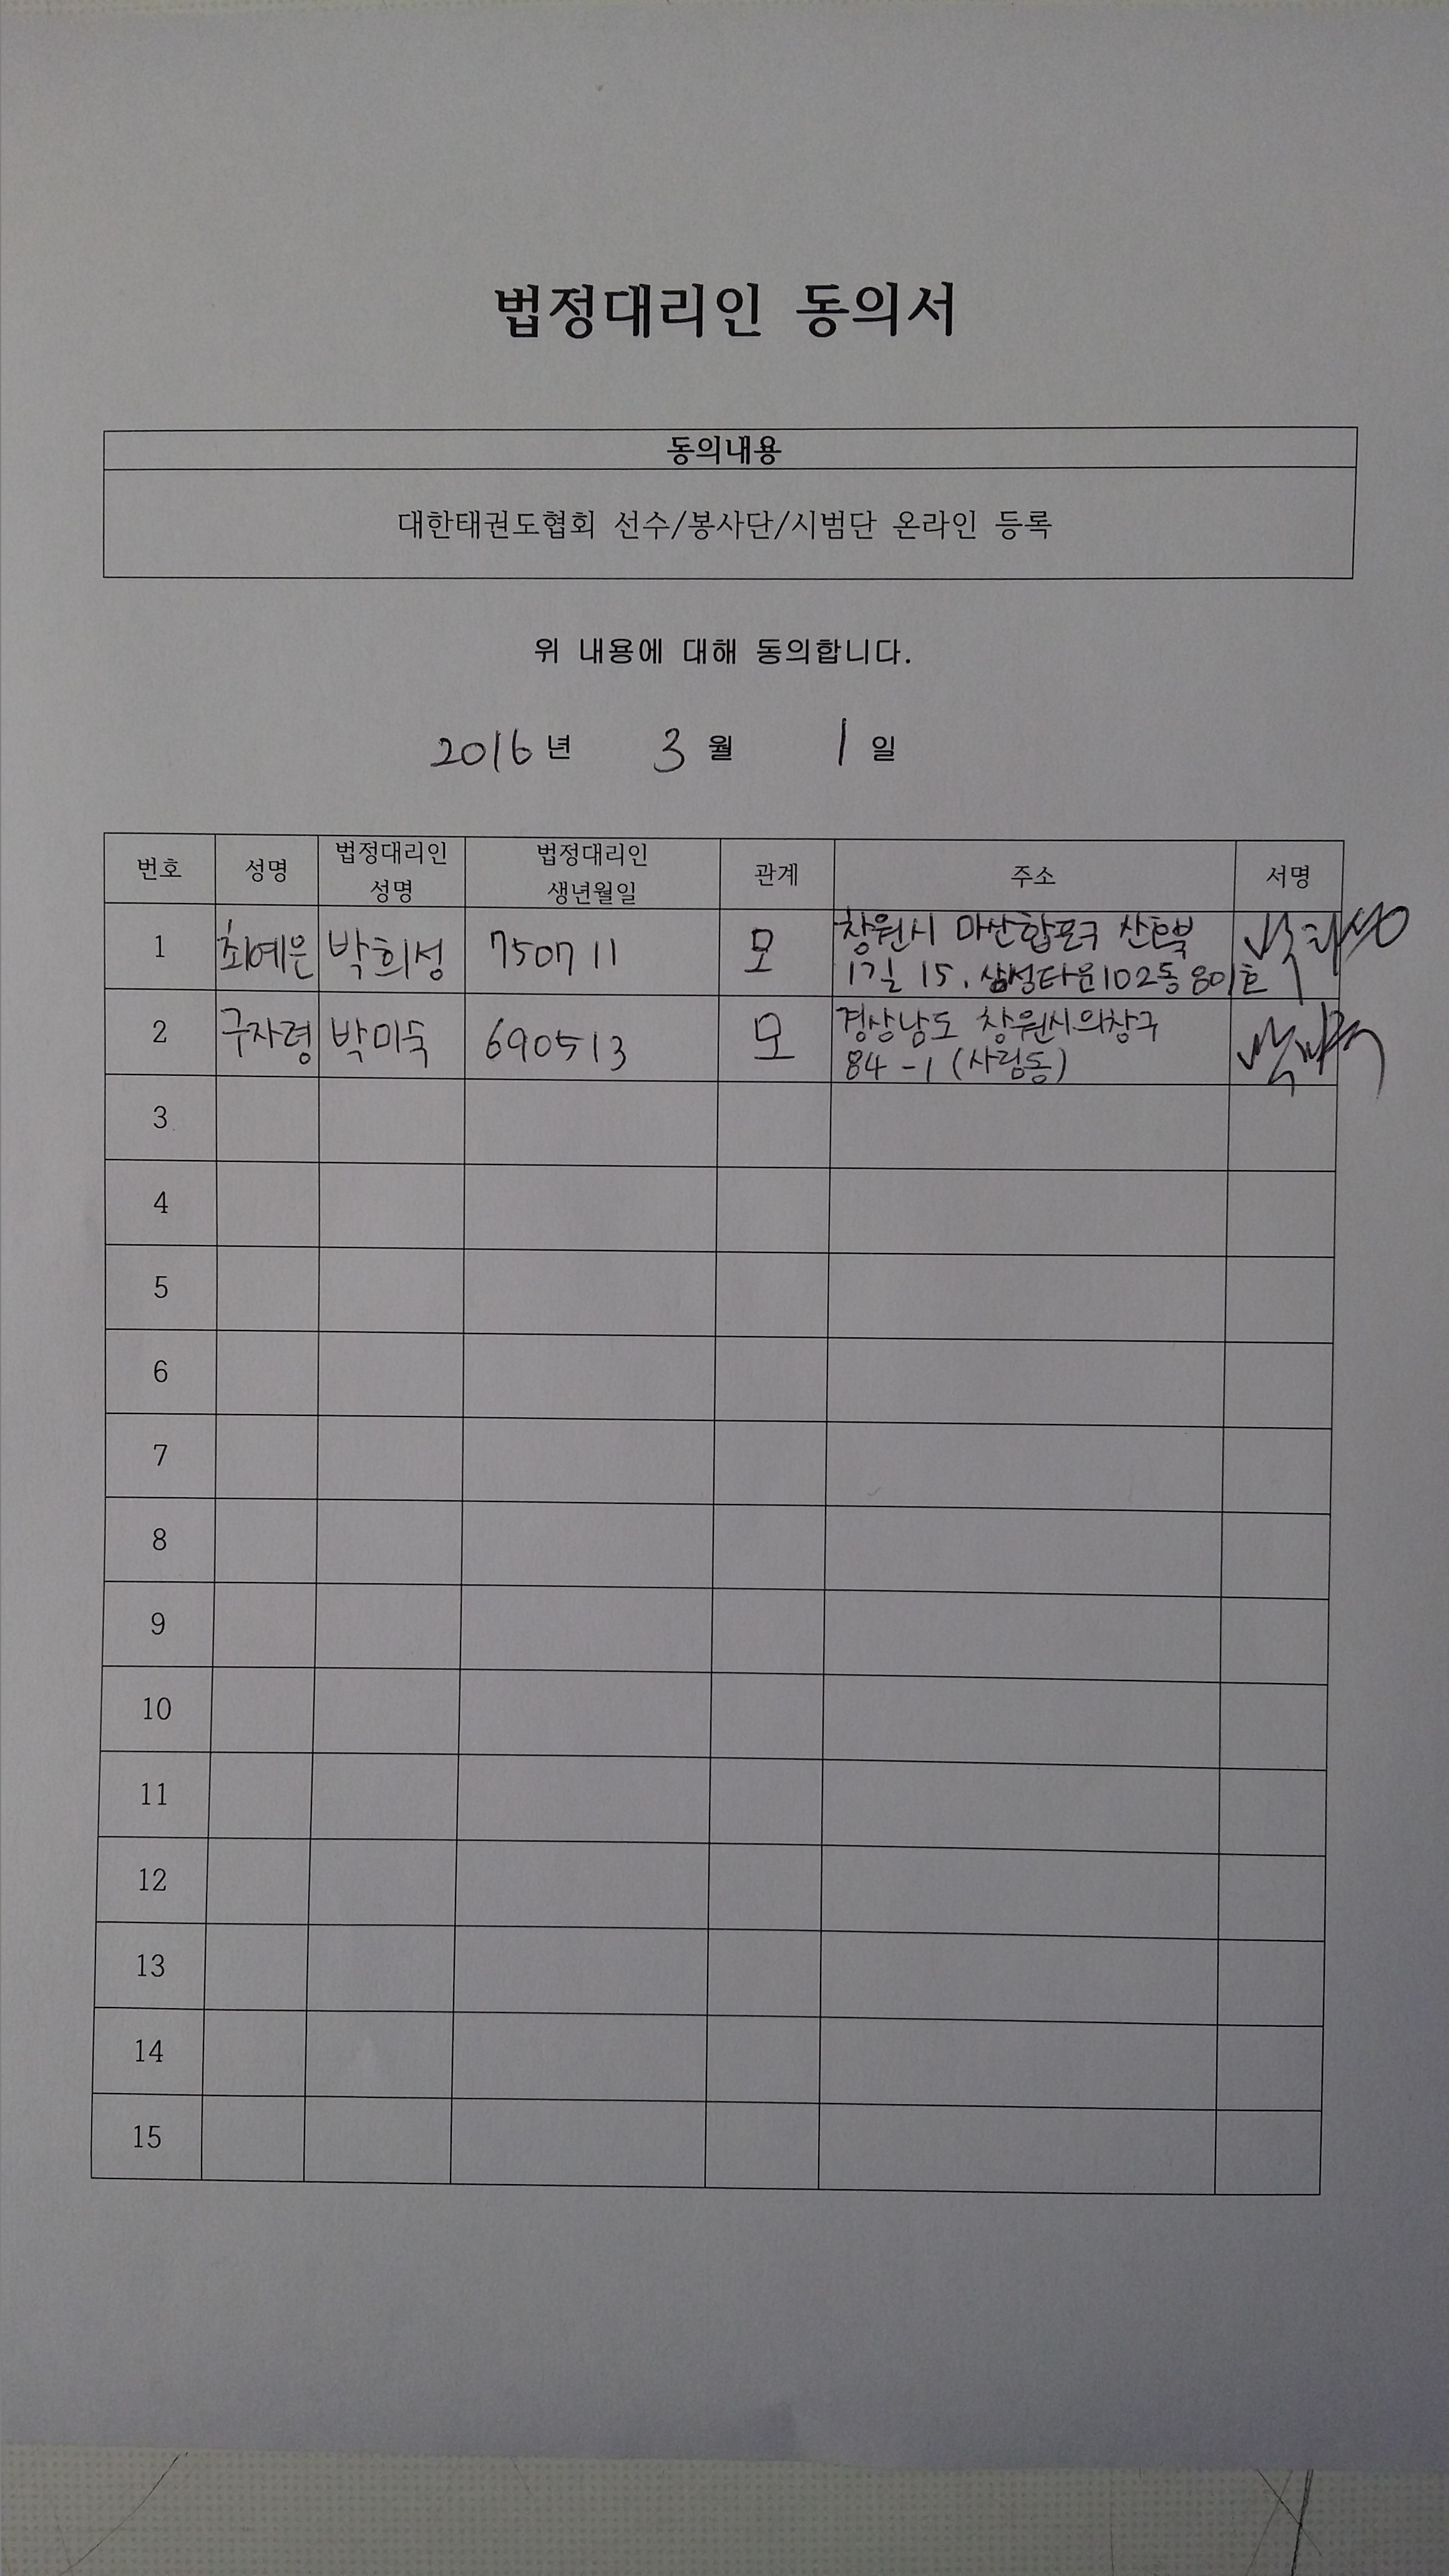 법정대리인 동의서
동의내용
대한태권도협회 선수/봉사단/시범단 온라인 등록
위 내용에 대해 동의합니다.
2016 년 3 월 1 일
번호 성명 법정대리인 성명 법정대리인 생년월일 관계 주소 서명
1 최예은 박희성 750711 모 창원시 마산합포구 산호북
17길 15. 삼성타운102동 801호
2 구자령 박미숙 690513 모 경상남도 창원시의창구
84-1 (사림동)
3
4
5
6
7
8
9
10
11
12
13
14
15